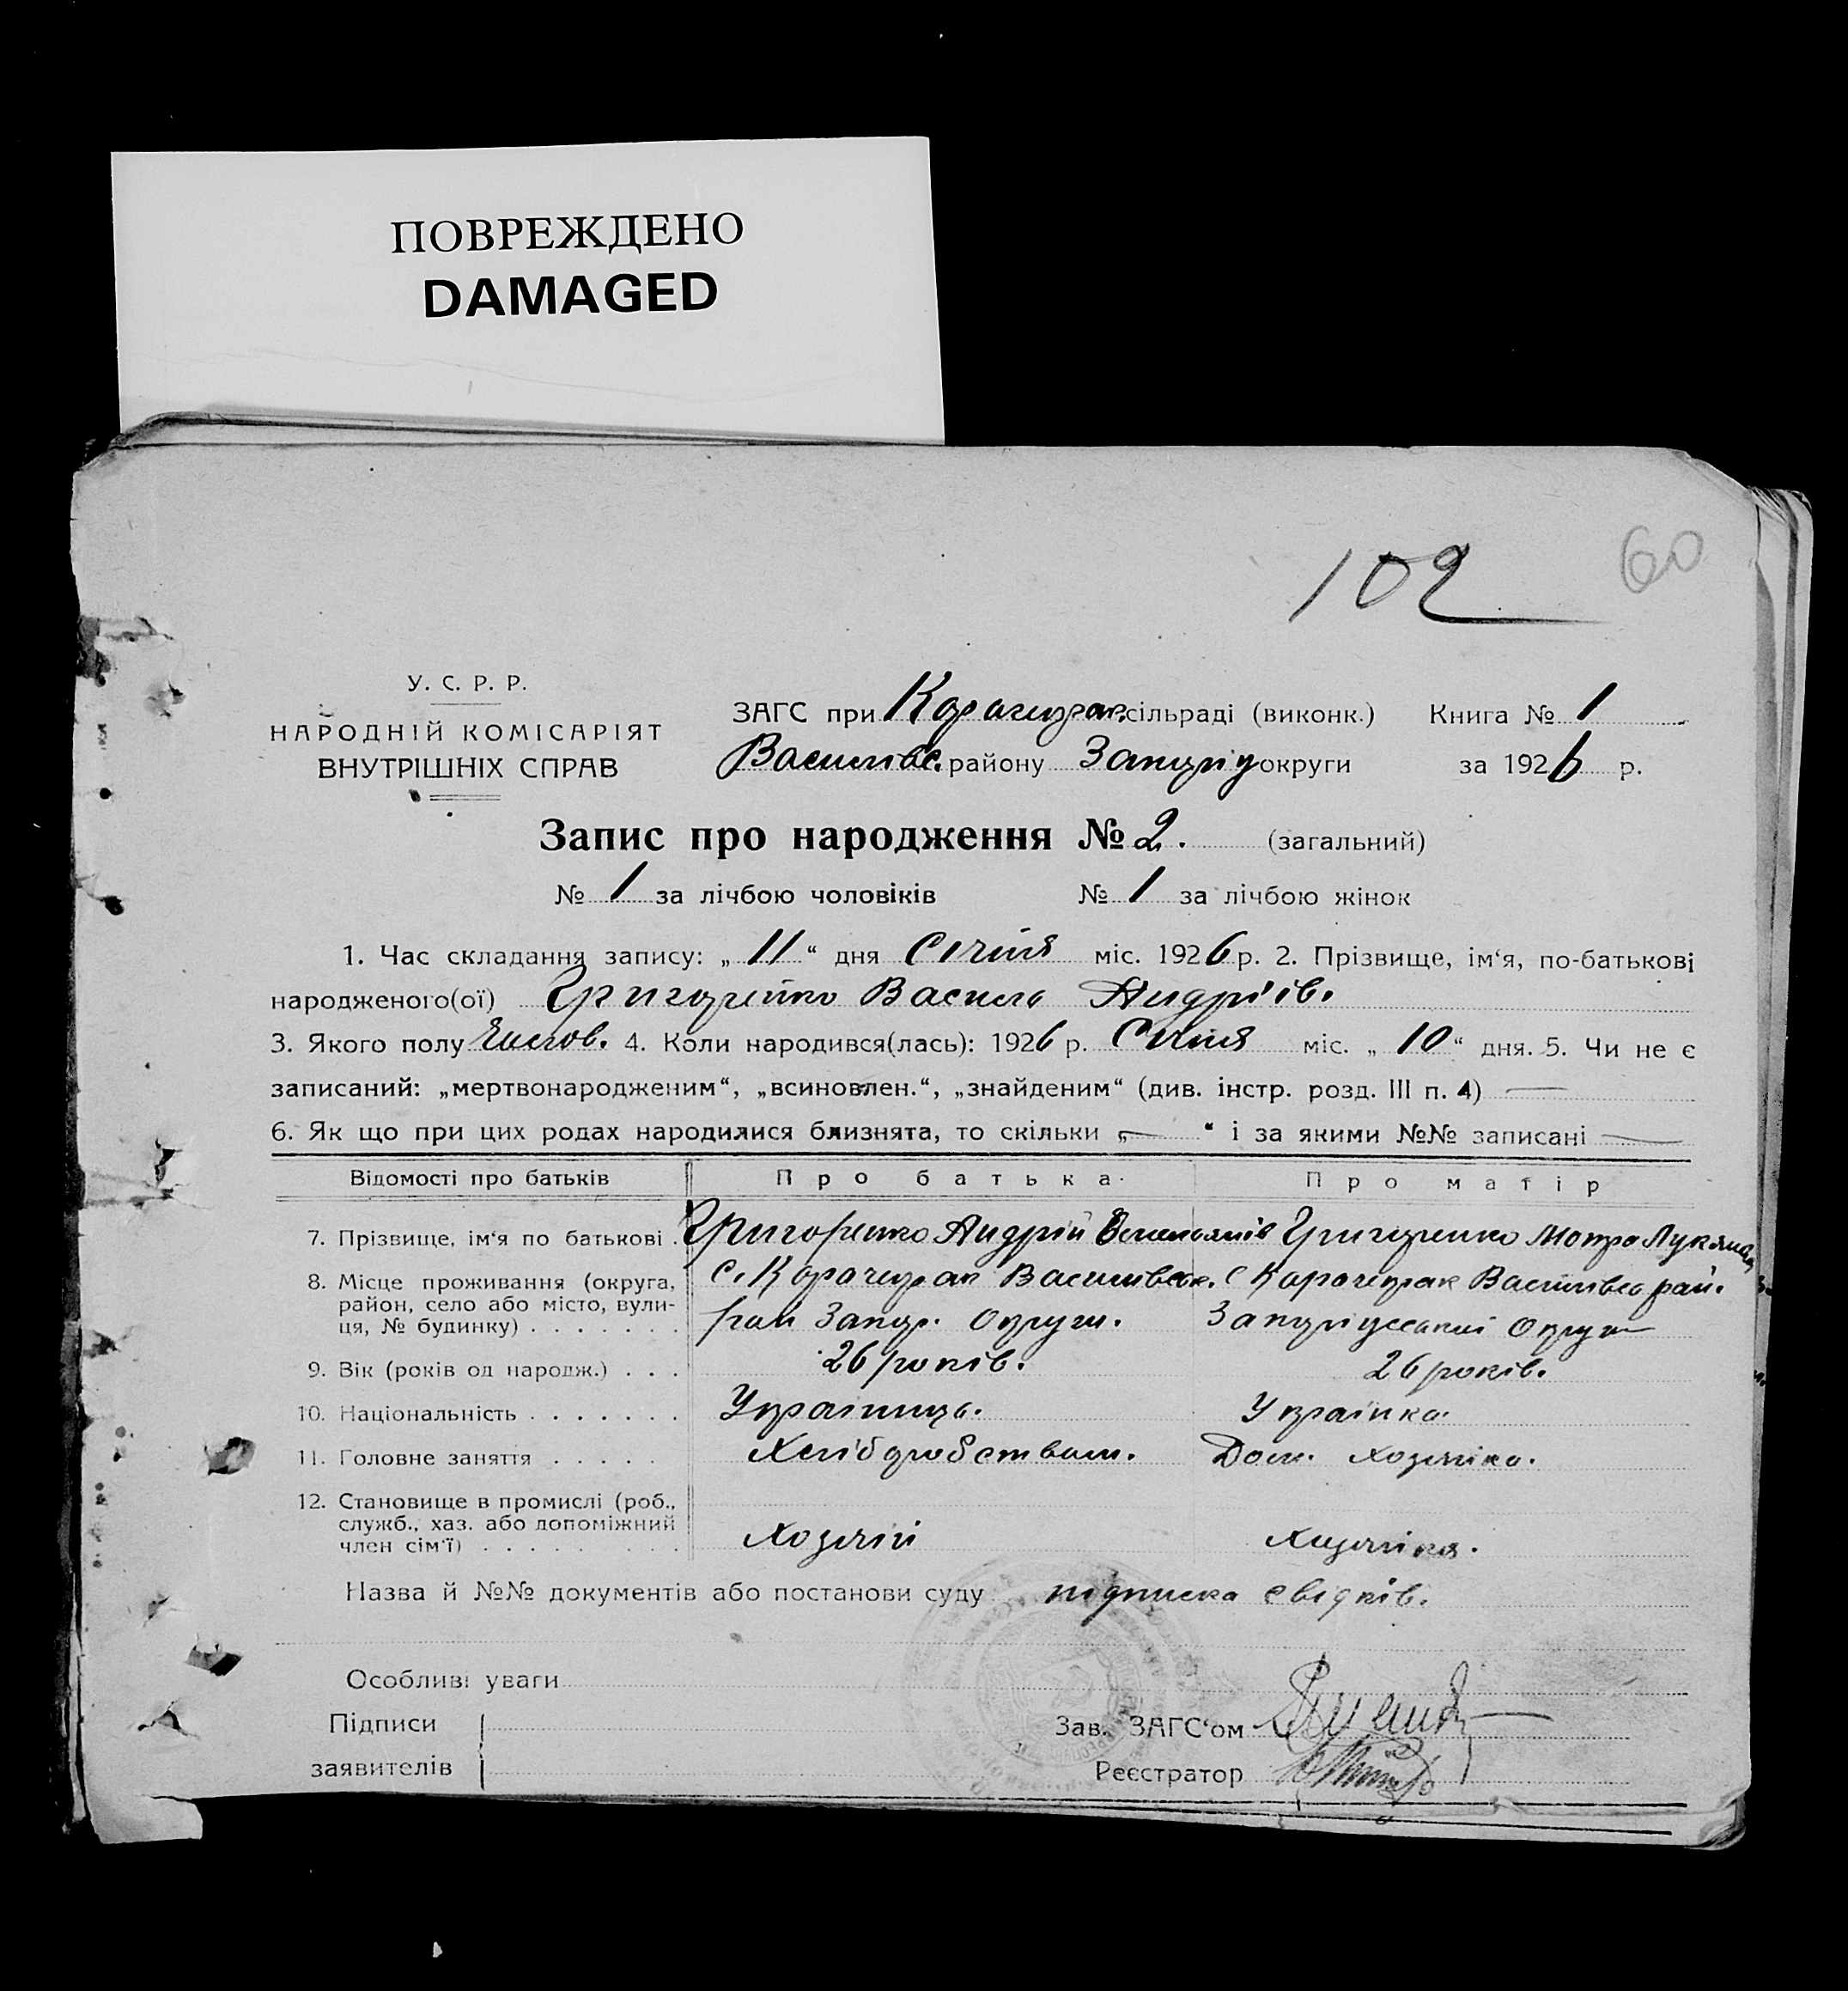 ПОВРЕЖДЕНО
DAMAGED
102
60
У. С. Р. Р.
НАРОДНІЙ КОМІСАРІЯТ
ВНУТРІШНІХ СПРАВ
ЗАГС при Карачекрак. сільраді (виконк.) Книга № 1
Василівс. району Запоріз округи за 1926 р.
Запис про народження № 2. (загальний)
№ 1 за лічбою чоловіків № 1 за лічбою жінок
1. Час складання запису: „ 11 “ дня Січня міс. 1926 р. 2. Прізвище, ім‘я, по-батькові
народженого(ої) Григоренко Василь Андріїв.
3. Якого полу Чолов. 4. Коли народився(лась): 1926 р. Січня міс. „ 10 “ дня. 5. Чи не є
записаний: „мертвонародженим“, „всиновлен.“, „знайденим“ (див. інстр. розд. III п. 4) —
6. Як що при цих родах народилися близнята, то скільки „ — “ і за якими №№ записані —
Відомості про батьків Про батька Про матір
7. Прізвище, ім‘я по батькові . Григоренко Андрій Григоренко Мотря
8. Місце проживання (округа, район, село або місто, вули-ця, № будинку) . . . . . . .
с. Карачекрак Василівськ. с Карачекрак Василівсь рай.
рай Запор. Округи. Запорізської Округи
9. Вік (років од народж.) . . . 26 років. 26 років.
10. Національність . . . . . . . Українець. Українка.
11. Головне заняття . . . . . Хліборобством. Дом. хозяйка.
12. Становище в промислі (роб., служб., хаз. або допоміжний член сім‘ї) . . . . . . . .
Хозяїн Хозяйка.
Назва й №№ документів або постанови суду підписка свідків.
Особливі уваги
Підписи
заявителів
Зав. ЗАГС‘ом
Реєстратор